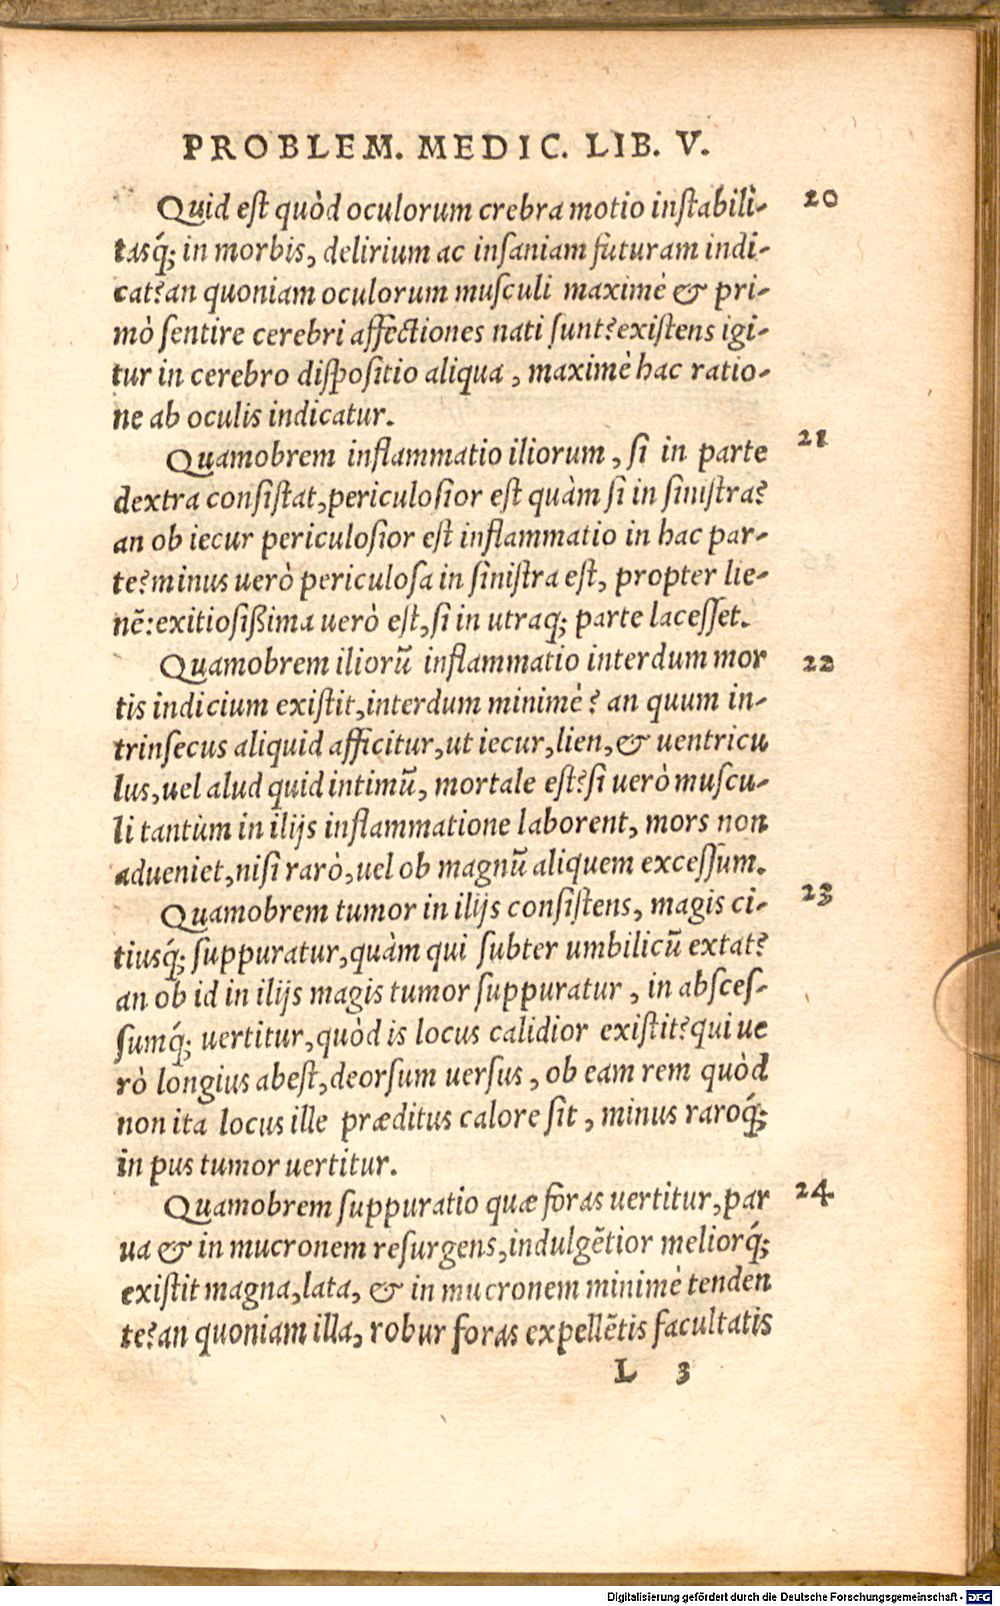 PROBLEM. MEDIC. LIB. V.
Quid est quòd oculorum crebra motio instabili- 20
tasq́; in morbis, delirium ac insaniam futuram indi-
cat? an quoniam oculorum musculi maximè & pri-
mò sentire cerebri affectiones nati sunt? existens igi-
tur in cerebro dispositio aliqua, maximè hac ratio-
ne ab oculis indicatur.
Quamobrem inflammatio iliorum, si in parte 21
dextra consistat, periculosior est quàm si in sinistra?
an ob iecur periculosior est inflammatio in hac par-
te? minus uerò periculosa in sinistra est, propter lie-
nẽ: exitiosißima uerò est, si in utraq; parte lacesset.
Quamobrem iliorũ inflammatio interdum mor 22
tis indicium existit, interdum minimè? an quum in-
trinsecus aliquid afficitur, ut iecur, lien, & uentricu
lus, uel alud quid intimũ, mortale est? si uerò muscu-
li tantùm in ilijs inflammatione laborent, mors non
adueniet, nisi rarò, uel ob magnũ aliquem excessum.
Quamobrem tumor in ilijs consistens, magis ci- 23
tiusq́; suppuratur, quàm qui subter umbilicũ extat?
an ob id in ilijs magis tumor suppuratur, in absces-
sumq́; vertitur, quòd is locus calidior existit? qui ue
rò longius abest, deorsum uersus, ob eam rem quòd
non ita locus ille præditus calore sit, minus raroq́;
in pus tumor uertitur.
Quamobrem suppuratio quæ foras uertitur, par 24
ua & in mucronem resurgens, indulgẽtior meliorq́;
existit magna, lata, & in mucronem minimè tenden
te? an quoniam illa, robur foras expellẽtis facultatis
L 3
Digitalisierung gefördert durch die Deutsche Forschungsgemeinschaft - DFG